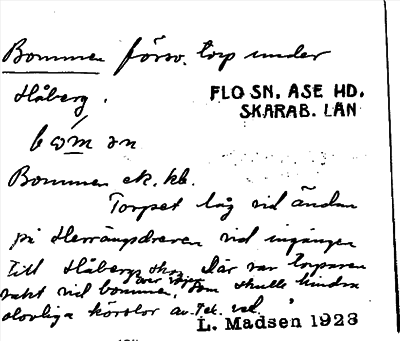 Bommen försv. torp under
Håberg.
FLO SN. ASE HD.
SKARAB. LÄN
bom̄ən
Bommen ek. kb.
Torpet låg vid ändan
på Herrängsdreven vid ingången
till Håbergs skog. Där var torparen
vakt vid bommen över vägen, som skulle hindra
olovliga körslor av
L. Madsen 1923